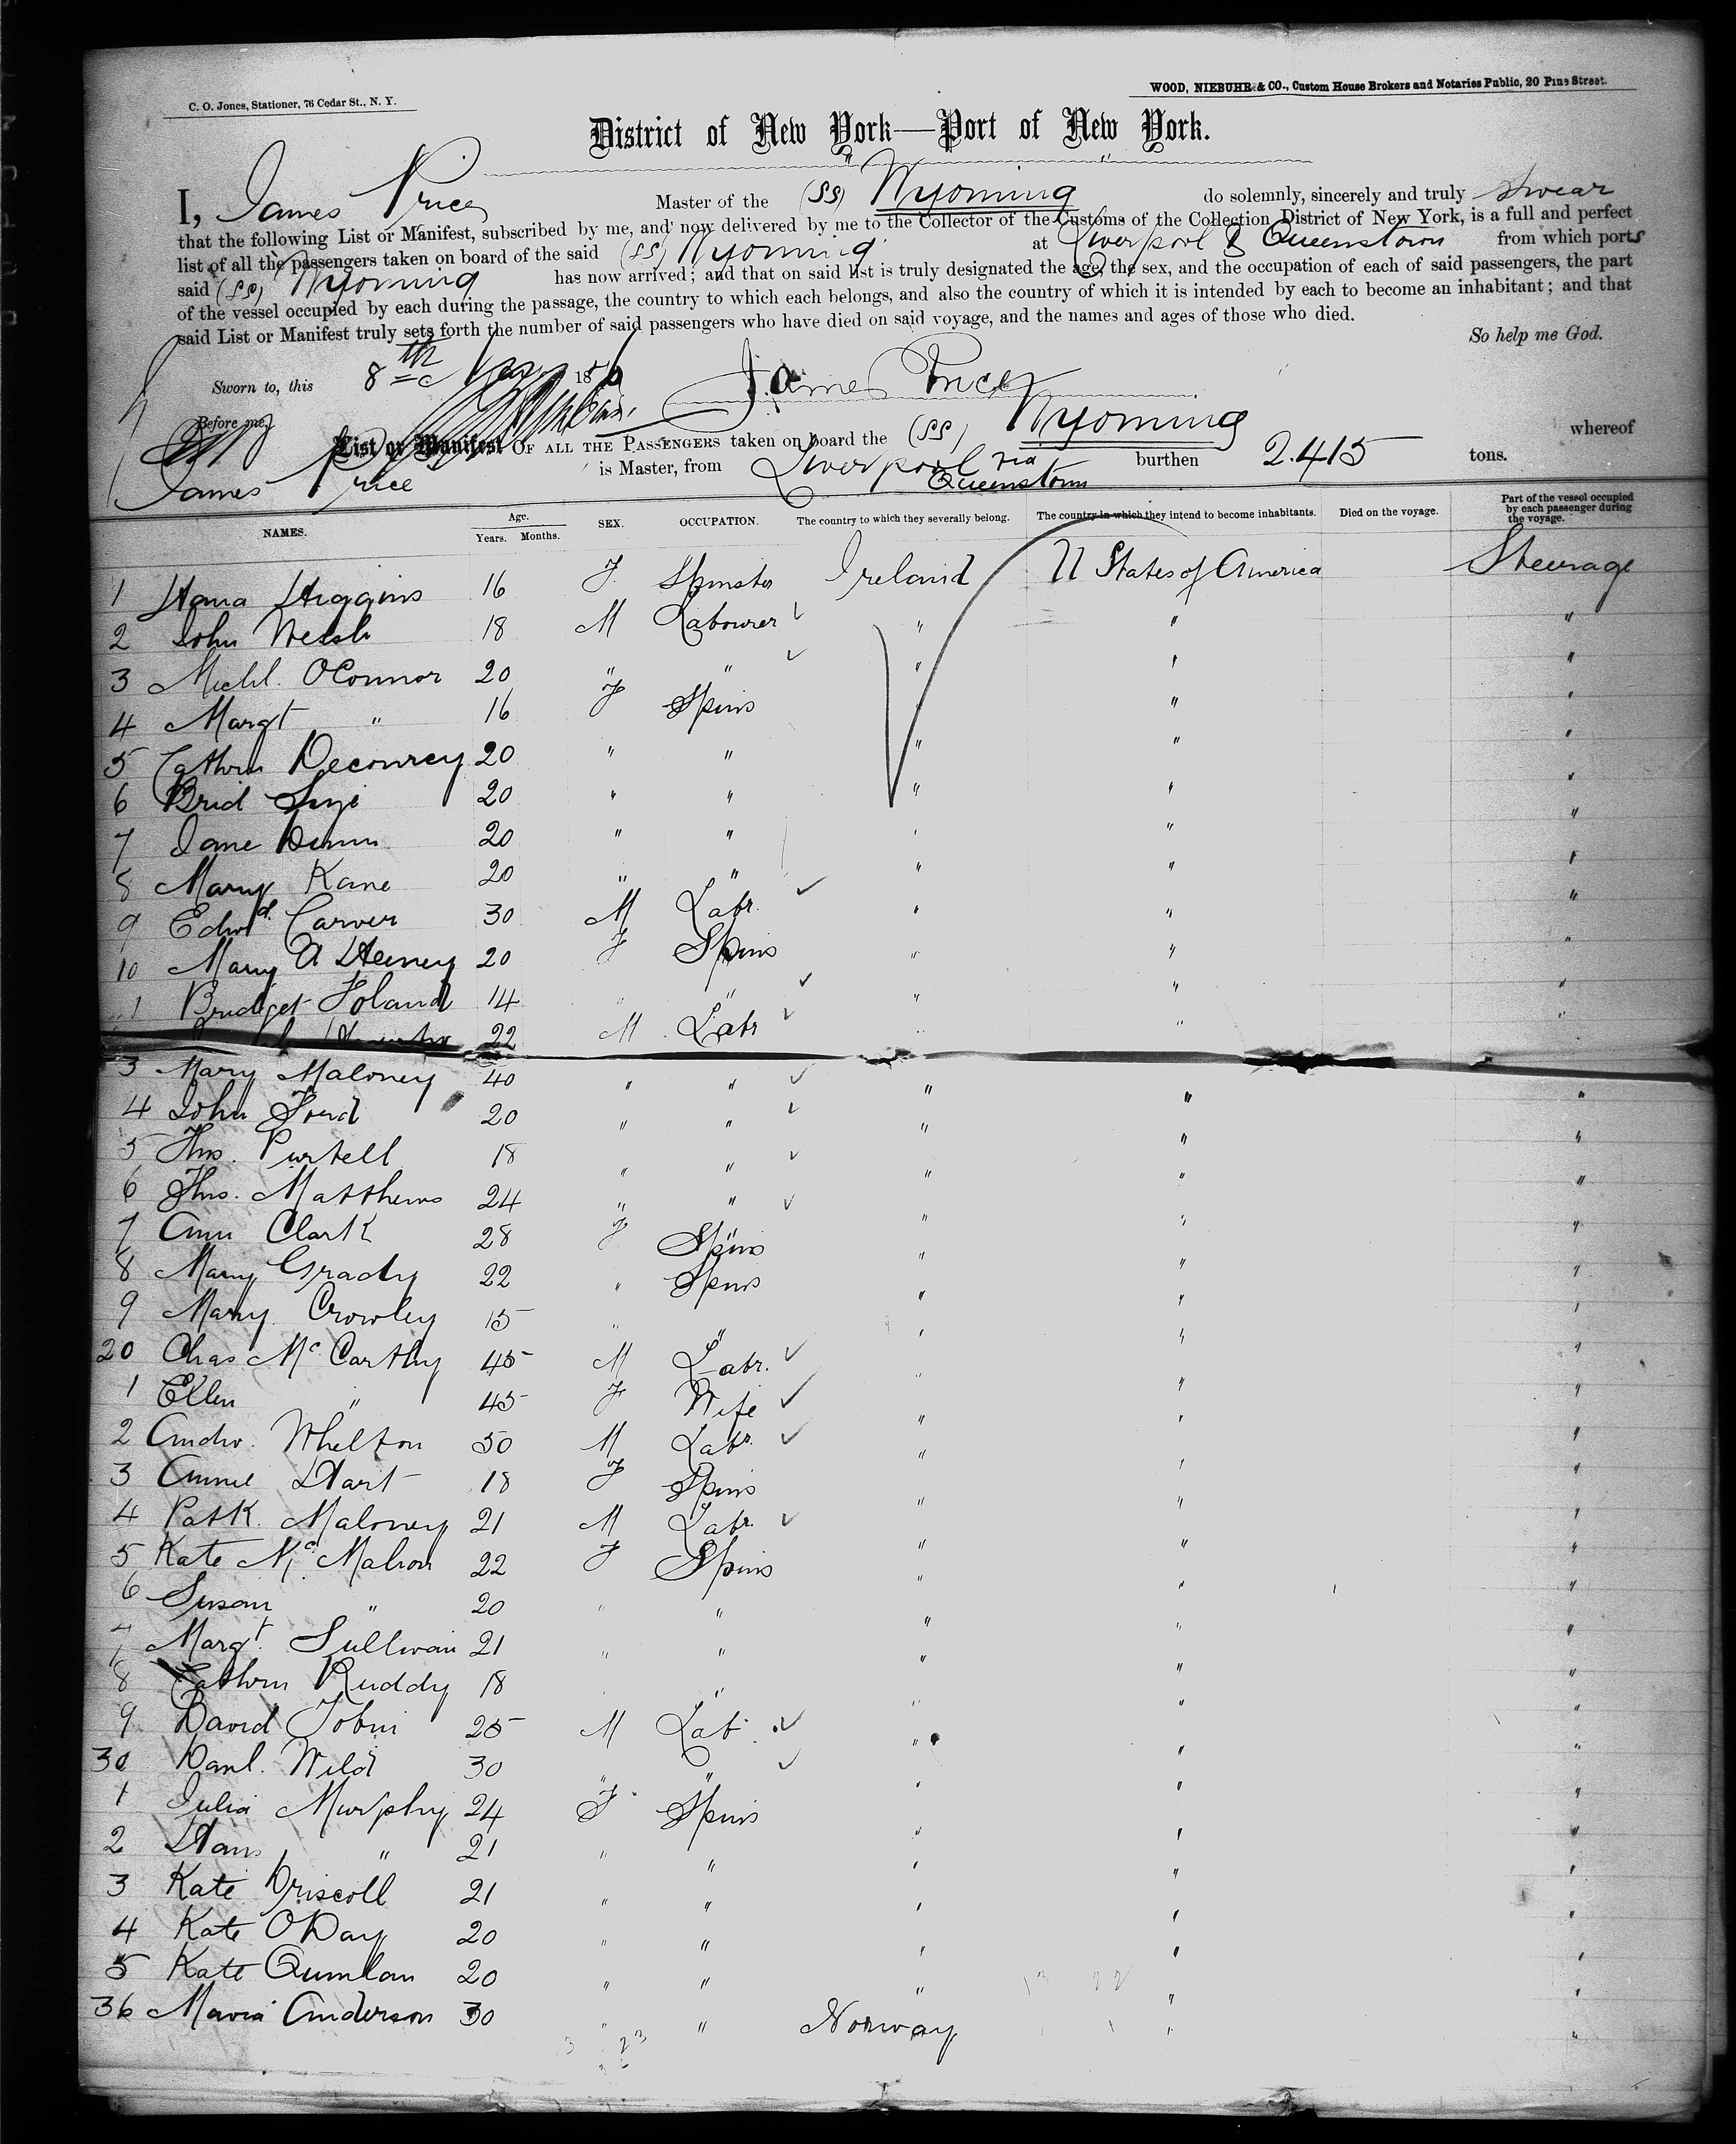 C. O. Jones, Stationer, 76 Cedar St., N. Y.
WOOD, NIEBUHR & CO., Custom House Brokers and Notaries Public, 20 Pine Street.
District of New York—Port of New York.
I, James Price Master of the (SS) Wyoming do solemnly, sincerely and truly swear
that the following List or Manifest, subscribed by me, and now delivered by me to the Collector of the Customs of the Collection District of New York, is a full and perfect
list of all the passengers taken on board of the said (SS) Wyoming at Liverpool & Queenstown from which ports
said (SS) Wyoming has now arrived; and that on said list is truly designated the age, the sex, and the occupation of each of said passengers, the part
of the vessel occupied by each during the passage, the country to which each belongs, and also the country of which it is intended by each to become an inhabitant; and that
said List or Manifest truly sets forth the number of said passengers who have died on said voyage, and the names and ages of those who died.
So help me God.
Sworn to, this 8th 18 James Price
Before me,
List or Manifest OF ALL THE PASSENGERS taken on board the (SS) Wyoming whereof
James Price is Master, from Liverpool via Queenstown burthen 2.415 tons.
NAMES. Age. Years. Months. SEX. OCCUPATION. The country to which they severally belong. The country in which they intend to become inhabitants. Died on the voyage. Part of the vessel occupied by each passenger during the voyage.
1 Hana Higgins 16 F. Spinster Ireland U States of America Steerage
2 John Welsh 18 M Labourer " " "
3 Michl. OConnor 20 " " " " "
4 Margt " 16 F Spins " " "
5 Cathrn Decourcy 20 " " " " "
6 Brid 20 " " " " "
7 Jane Dunn 20 " " " " "
8 Mary Kane 20 " " " " "
9 Edwd. Carver 30 M Labr. " " "
10 Mary A Heeney 20 F Spins " " "
1 Bridget Foland 14 " " " " "
22 M Labr " " "
3 Mary Maloney 40 " " " " "
4 John Ford 20 " " " " "
5 Thos. Purtell 18 " " " " "
6 Thos. Matthews 24 " " " " "
7 Ann Clark 28 F Spins " " "
8 Mary Grady 22 " Spins " " "
9 Mary Crowley 15 " " " " "
20 Chas McCarthy 45 M Labr. " " "
1 Ellen " 45 F Wife " " "
2 Andw. Whelton 50 M Labr. " " "
3 Annie Hart 18 F Spins " " "
4 Patk. Maloney 21 M Labr. " " "
5 Kate McMahon 22 F Spins " " "
6 Susan " 20 " " " " "
7 Margt. Sullivan 21 " " " " "
8 Cathrn Ruddy 18 " " " " "
9 David Tobin 25 M Lab. " " "
30 Danl. Wild 30 " " " " "
1 Julia Murphy 24 F Spins " " "
2 Hana " 21 " " " " "
3 Kate Driscoll 21 " " " " "
4 Kate ODay 20 " " " " "
5 Kate Quinlan 20 " " " " "
36 Maria Anderson 30 " " Norway " "